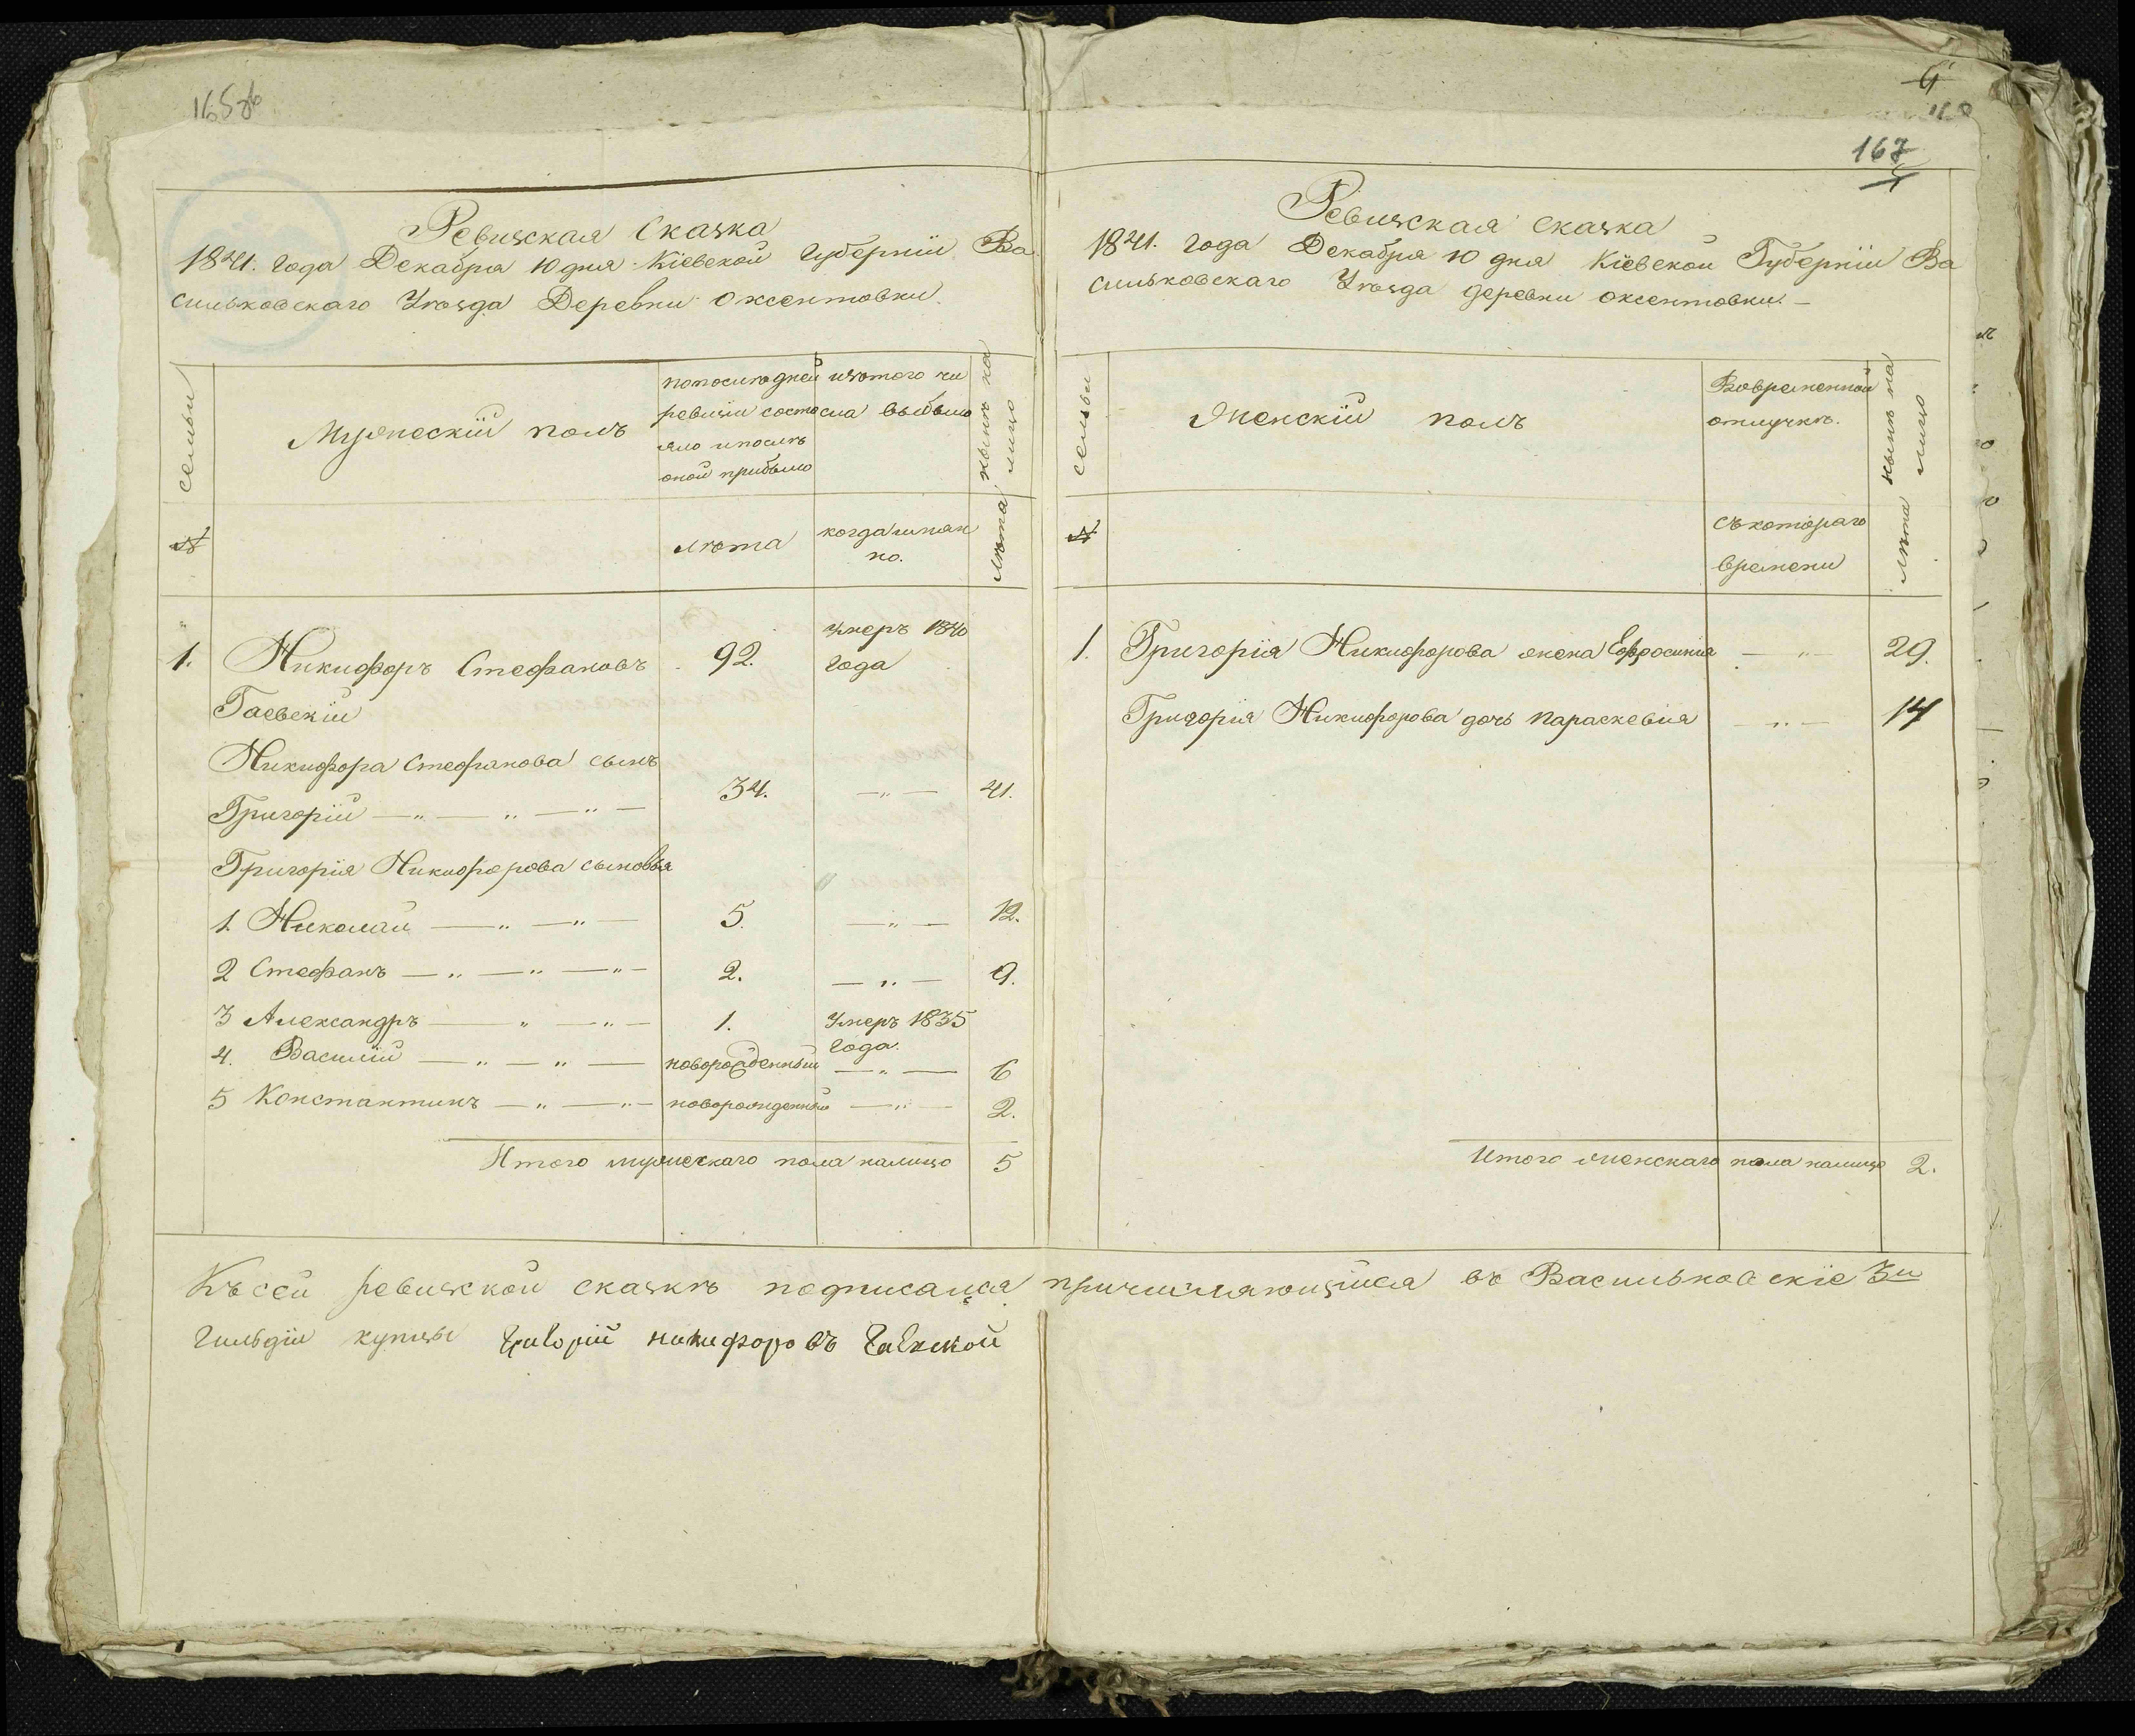 167
Ревизская Сказка
1841. года Декабря 10 дня Кіевской Губерніи Ва
сильковскаго Уѣзда Деревни Оксентовки.
семьи
Мужескій полъ
попослѣдней
ревизіи состо
яло ипослѣ
оной прибыло
изтого чи
сла выбыло
нынѣ на
лицо
№
лѣта
когда именно.
лѣта
1. Никифоръ Стефановъ 92. умеръ 1840
Гаевскій года
Никифора Стефанова сынъ
Григорій 34. 41.
Григорія Никифорова сыновья
1. Николай 5. 12.
2 Стефанъ 2. 9.
3 Александръ 1. умеръ 1835
года.
4. Василій новорожденный 6
5 Константинъ новорожденный 2.
Итого мужескаго пола налицо 5
Ревизская сказка
1841. года Декабря 10 дня Кіевской Губерніи Ва
сильковскаго Уѣзда деревни оксентовки.
семьи
Женскій полъ
Вовременной
отлучкѣ.
нынѣ на
лицо
№
съкотораго
времени
лѣта
1. Григорія Никифорова жена Ефросинія 29.
Григорія Никифорова дочь Параскевія 14
Итого женскаго пола налицо 2.
Къ сей ревизской сказкѣ подписался причисляющійся въ Васильковскіе 3й
гильдіи купцы Григорій никифоровъ Гаевской